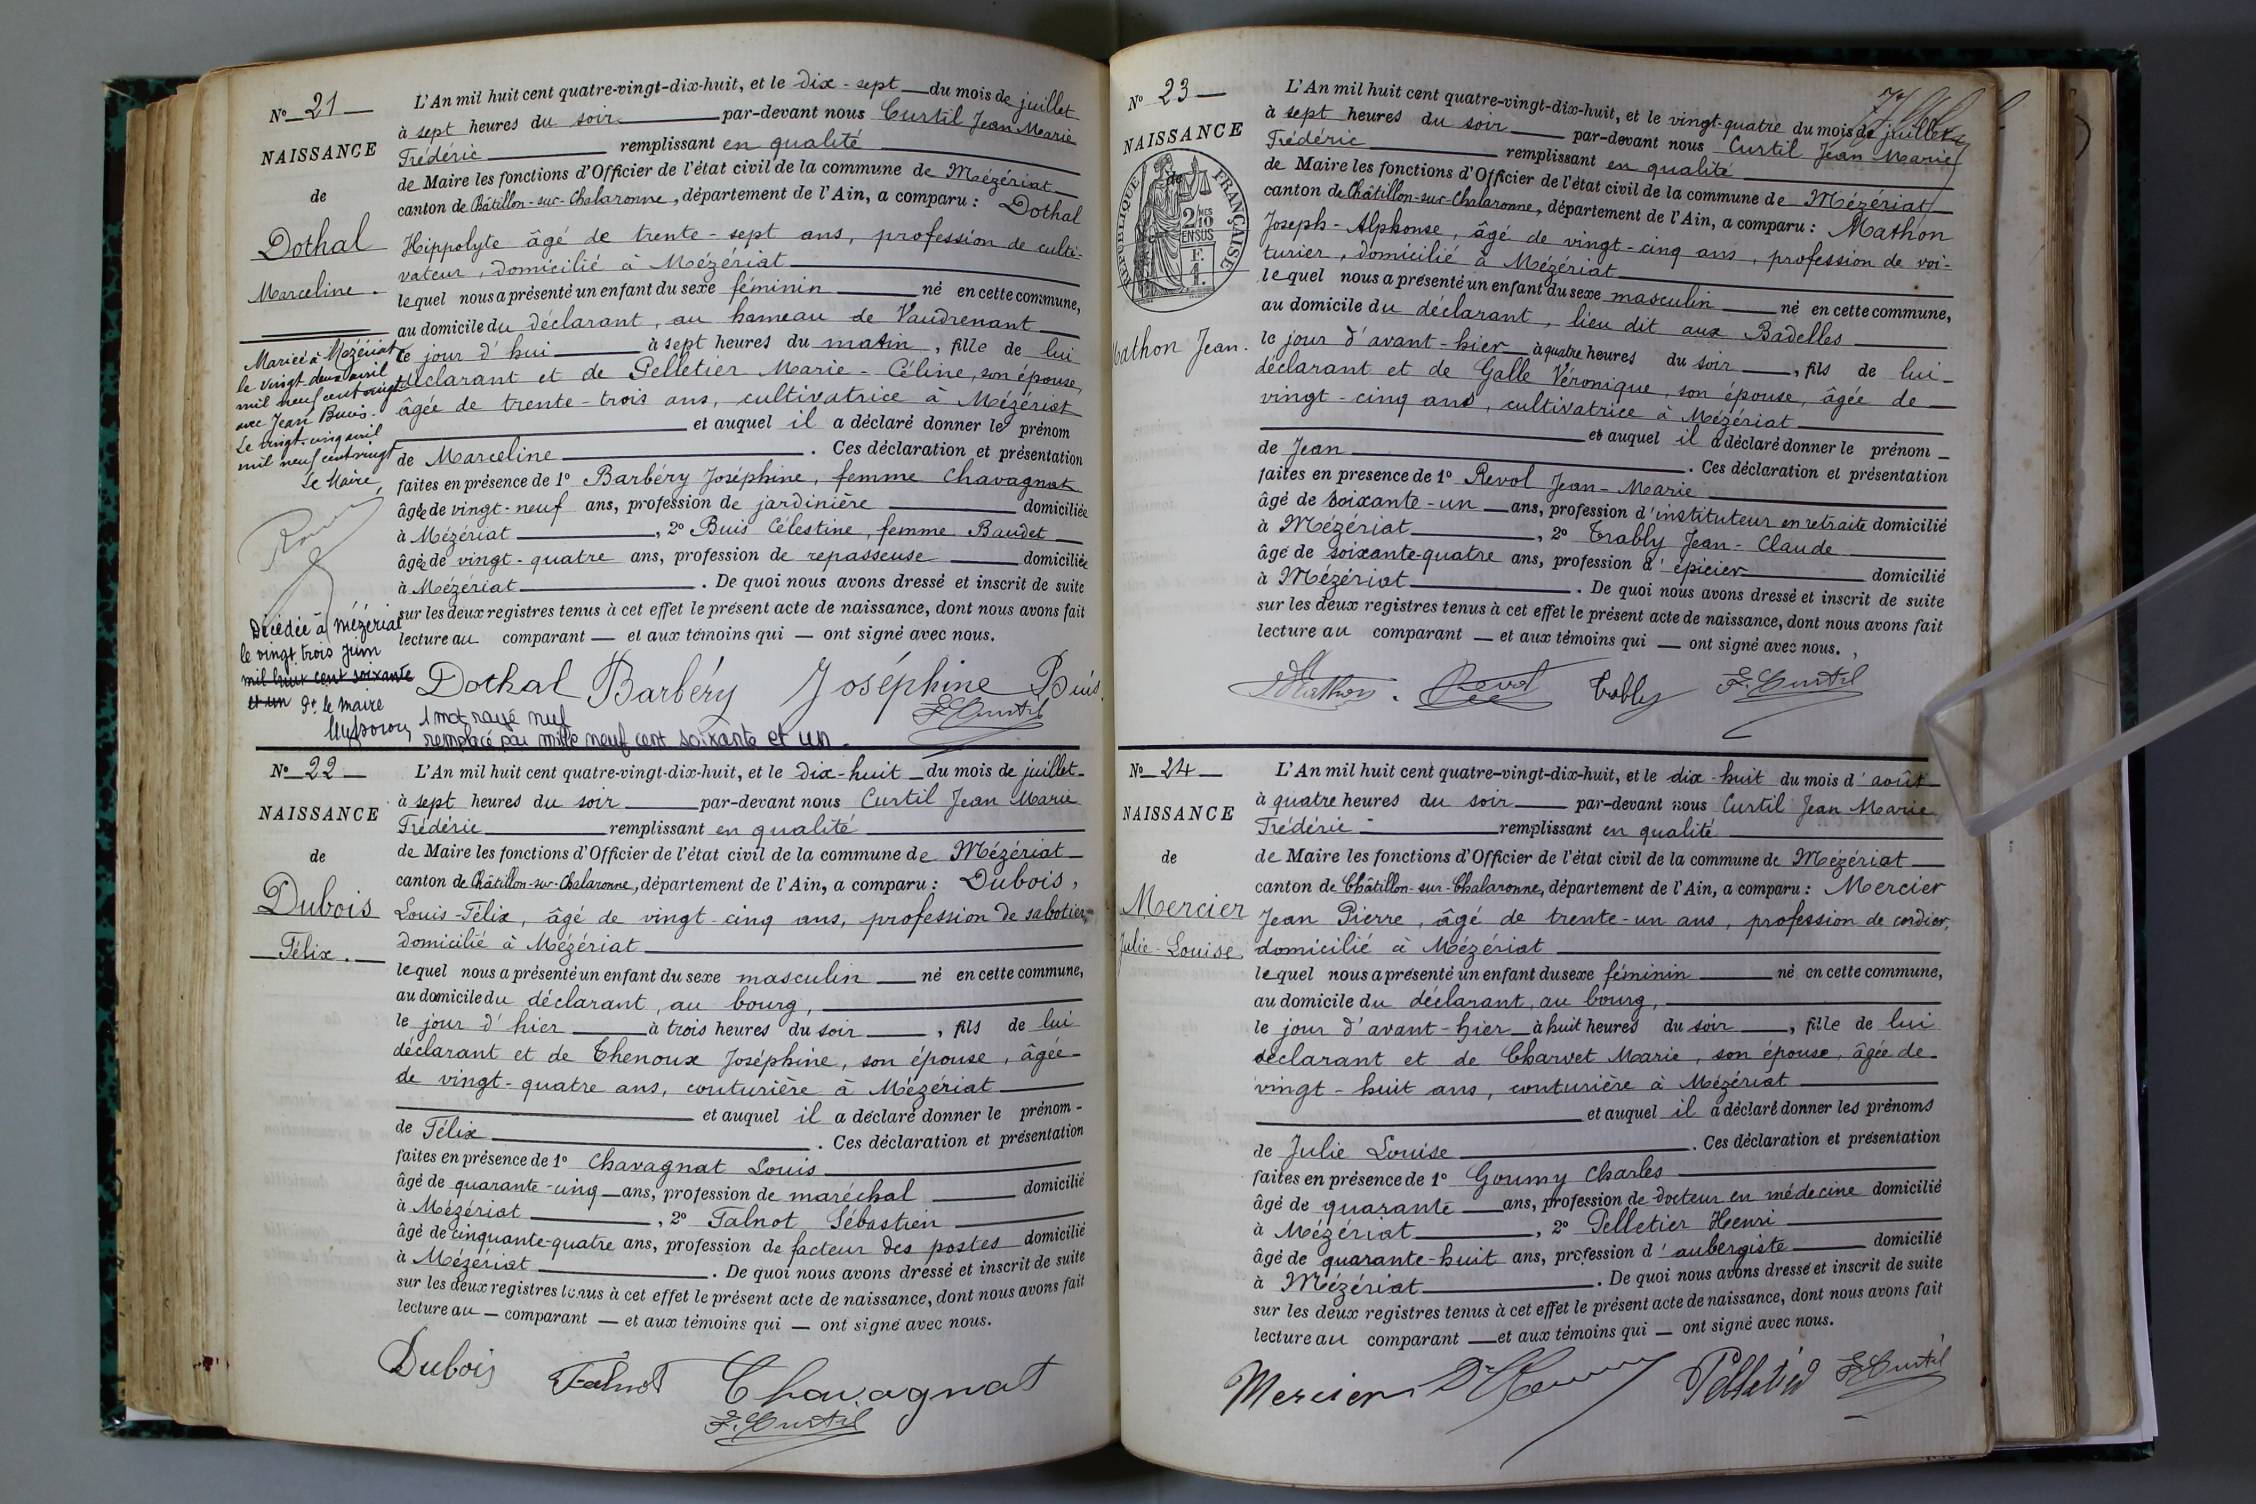 Nº 21
NAISSANCE
de
Dothal
Marceline.
Mariée à Mézériat
le vingt deux avril
mil neuf cent vingt
avec Jean Buis.
Le vingt-cinq avril
mil neuf cent vingt
Le Maire,
Décédée à Mézériat
le vingt trois juin
mil huit cent soixante
et un Pr le maire
L'An mil huit cent quatre-vingt-dix-huit, et le dix-sept du mois de juillet
à sept heures du soir par-devant nous Curtil Jean Marie
Frédéric remplissant en qualité
de Maire les fonctions d'Officier de l'état civil de la commune de Mézériat
canton de Châtillon-sur-Chalaronne, département de l'Ain, a comparu : Dothal
Hippolyte âgé de trente-sept ans, profession de culti-
vateur, domicilié à Mézériat
lequel nous a présenté un enfant du sexe féminin né en cette commune,
au domicile du déclarant, au hameau de Vaudrenant
le jour d'hui à sept heures du matin, fille de lui
déclarant et de Pelletier Marie-Céline, son épouse,
âgée de trente-trois ans, cultivatrice à Mézériat
et auquel il a déclaré donner le prénom
de Marceline. Ces déclaration et présentation
faites en présence de 1º Barbéry Joséphine, femme Chavagnat
âgée de vingt-neuf ans, profession de jardinière domiciliée
à Mézériat, 2º Buis Célestine, femme Baudet
âgée de vingt-quatre ans, profession de repasseuse domiciliée
à Mézériat. De quoi nous avons dressé et inscrit de suite
sur les deux registres tenus à cet effet le présent acte de naissance, dont nous avons fait
lecture au comparant et aux témoins qui ont signé avec nous.
Dothal Barbéry Joséphine Buis
F. Curtil
1 mot rayé nuf
remplacé par mille neuf cent soixante et un.
Nº 22
NAISSANCE
de
Dubois
Félix.
L'An mil huit cent quatre-vingt-dix-huit, et le dix-huit du mois de juillet
à sept heures du soir par-devant nous Curtil Jean Marie
Frédéric remplissant en qualité
de Maire les fonctions d'Officier de l'état civil de la commune de Mézériat
canton de Châtillon-sur-Chalaronne, département de l'Ain, a comparu : Dubois,
Louis-Félix, âgé de vingt-cinq ans, profession de sabotier,
domicilié à Mézériat
lequel nous a présenté un enfant du sexe masculin né en cette commune,
au domicile du déclarant, au bourg,
le jour d'hier à trois heures du soir, fils de lui
déclarant et de Thenoux Joséphine, son épouse, âgée
de vingt-quatre ans, couturière à Mézériat
et auquel il a déclaré donner le prénom
de Félix. Ces déclaration et présentation
faites en présence de 1º Chavagnat Louis
âgé de quarante-cinq ans, profession de maréchal domicilié
à Mézériat, 2º Falnot Sébastien
âgé de cinquante-quatre ans, profession de facteur des postes domicilié
à Mézériat. De quoi nous avons dressé et inscrit de suite
sur les deux registres tenus à cet effet le présent acte de naissance, dont nous avons fait
lecture au comparant et aux témoins qui ont signé avec nous.
Dubois Falnot Chavagnat
F. Curtil
Nº 23
NAISSANCE
de
RÉPUBLIQUE FRANÇAISE
Mathon Jean.
L'An mil huit cent quatre-vingt-dix-huit, et le vingt-quatre du mois de juillet
à sept heures du soir par-devant nous Curtil Jean Marie
Frédéric remplissant en qualité
de Maire les fonctions d'Officier de l'état civil de la commune de Mézériat
canton de Châtillon-sur-Chalaronne, département de l'Ain, a comparu : Mathon
Joseph-Alphonse, âgé de vingt-cinq ans, profession de voi-
turier, domicilié à Mézériat
lequel nous a présenté un enfant du sexe masculin né en cette commune,
au domicile du déclarant, lieu dit aux Badelles
le jour d'avant-hier à quatre heures du soir, fils de lui
déclarant et de Galle Véronique, son épouse, âgée de
vingt-cinq ans, cultivatrice à Mézériat
et auquel il a déclaré donner le prénom
de Jean. Ces déclaration et présentation
faites en presence de 1º Revol Jean-Marie
âgé de soixante-un ans, profession d'instituteur en retraite domicilié
à Mézériat, 2º Trably Jean-Claude
âgé de soixante-quatre ans, profession d'épicier domicilié
à Mézériat. De quoi nous avons dressé et inscrit de suite
sur les deux registres tenus à cet effet le présent acte de naissance, dont nous avons fait
lecture au comparant et aux témoins qui ont signé avec nous.
Mathon. Revol Trably F. Curtil
Nº 24
NAISSANCE
de
Mercier
Julie-Louise
L'An mil huit cent quatre-vingt-dix-huit, et le dix-huit du mois d'août
à quatre heures du soir par-devant nous Curtil Jean Marie
Frédéric remplissant en qualité
de Maire les fonctions d'Officier de l'état civil de la commune de Mézériat
canton de Châtillon-sur-Chalaronne, département de l'Ain, a comparu : Mercier
Jean Pierre, âgé de trente-un ans, profession de cordier,
domicilié à Mézériat
lequel nous a présenté un enfant du sexe féminin né en cette commune,
au domicile du déclarant, au bourg,
le jour d'avant-hier à huit heures du soir, fille de lui
déclarant et de Charvet Marie, son épouse, âgée de
vingt-huit ans, couturière à Mézériat
et auquel il a déclaré donner les prénoms
de Julie Louise. Ces déclaration et présentation
faites en présence de 1º Goumy Charles
âgé de quarante ans, profession de docteur en médecine domicilié
à Mézériat, 2º Pelletier Henri
âgé de quarante-huit ans, profession d'aubergiste domicilié
à Mézériat. De quoi nous avons dressé et inscrit de suite
sur les deux registres tenus à cet effet le présent acte de naissance, dont nous avons fait
lecture au comparant et aux témoins qui ont signé avec nous.
Mercier Dr Goumy Pelletier F. Curtil